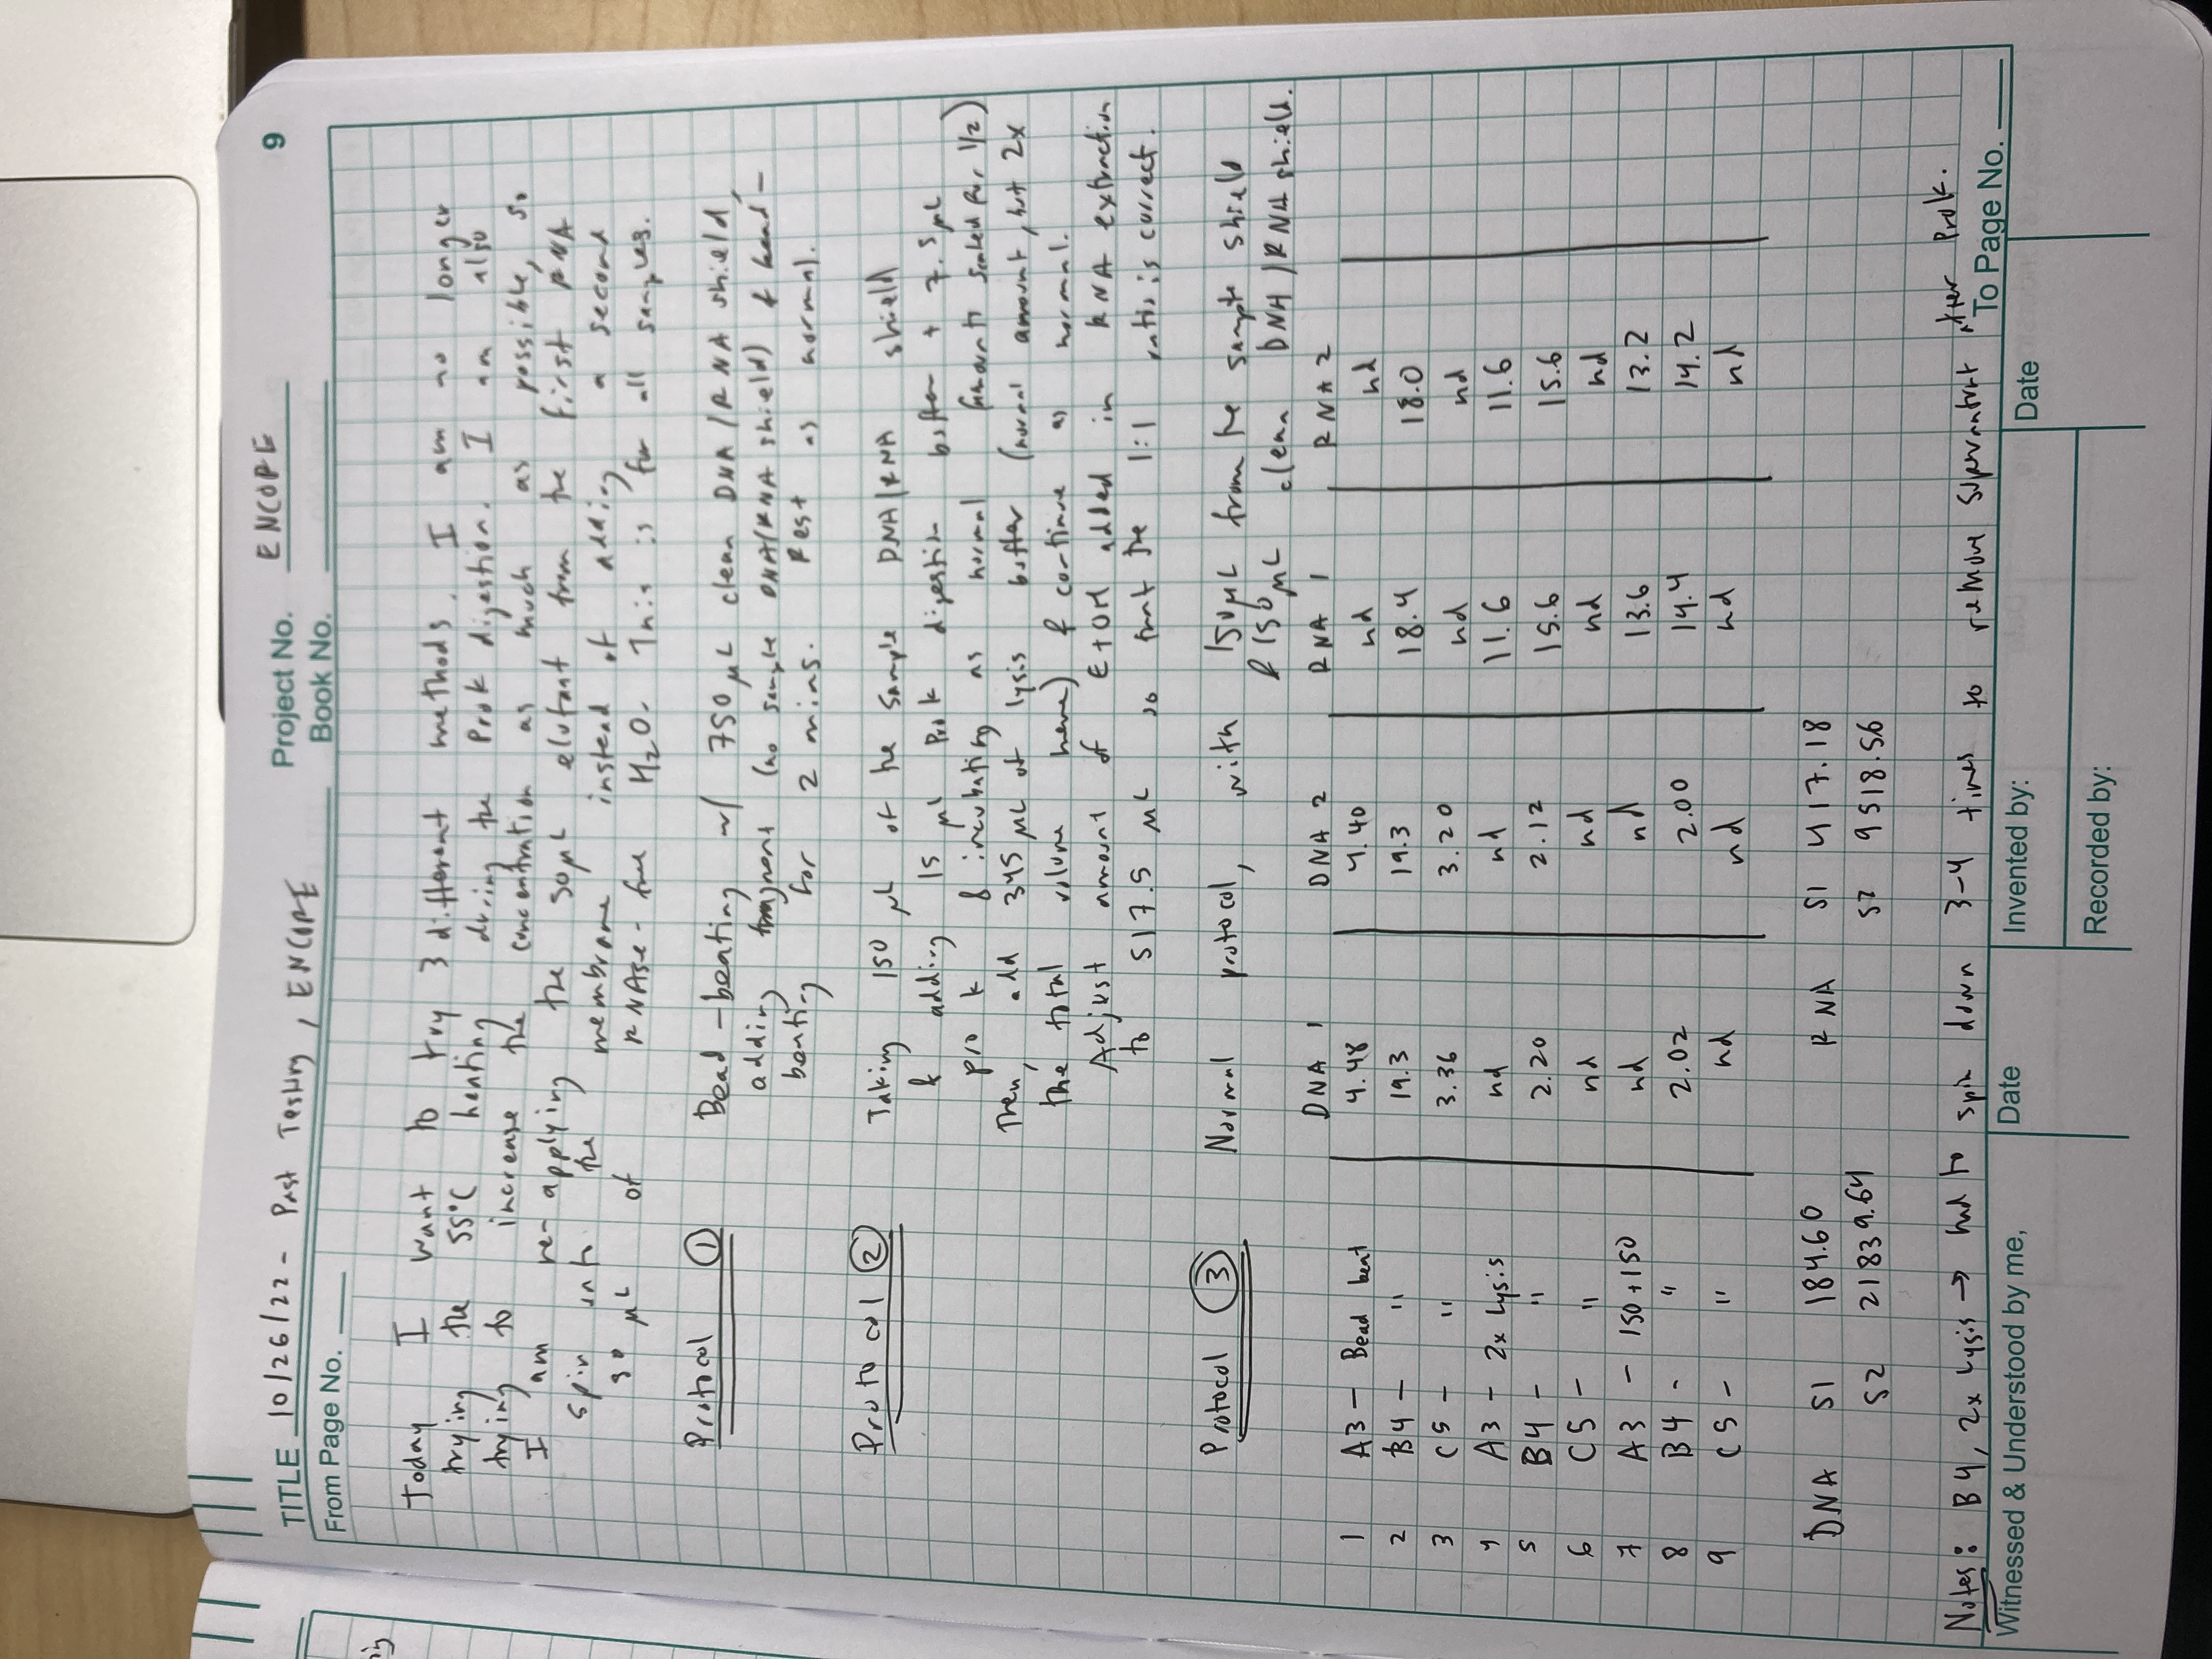 TITLE 10/26/22 - Past Testing, ENCORE
Project No. ENCORE
9
Book No.
From Page No.
Today I want to try 3 different methods. I am no longer
trying the 55°C heating during the ProK digestion. I am also
trying to increase the concentration as much as possible, so
I am re-applying the 50µL elutant from the first RNA
spin into the membrane instead of adding a second
µL of RNAse-free H2O. This is for all samples.
Protocol ① Bead-beating w/ 750 µL clean DNA/RNA shield,
adding fragment (no sample DNA/RNA shield) & bead-
beating for 2 mins. Rest as normal.
Protocol ② Taking 150 µL of the sample DNA/RNA shield
& adding 15 µL ProK digestion buffer + 7.5µL
pro k & incubating as normal (amounts scaled for 1/2)
Then, add 345 µL of lysis buffer (normal amount, but 2x
the total volume here) & continue as normal.
Adjust amount of EtOH added in RNA extraction
to 517.5 µL so that the 1:1 ratio is correct.
Protocol ③ Normal protocol, with 150µL from the sample shield
& 150µL clean DNA/RNA shield.
DNA 1 DNA 2 RNA 1 RNA 2
1 A3 - Bead beat 4.48 4.40 nd nd
2 B4 - " 19.3 19.3 18.4 18.0
3 C5 - " 3.36 3.20 nd nd
4 A3 - 2x Lysis nd nd 11.6 11.6
5 B4 - " 2.20 2.12 15.6 15.6
6 C5 - " nd nd nd nd
7 A3 - 150+150 nd nd 13.6 13.2
8 B4 - " 2.02 2.00 14.4 14.2
9 C5 - " nd nd nd nd
DNA S1 184.60 RNA S1 417.18
S2 21839.64 S2 9518.56
Notes: B4, 2x Lysis → had to spin down 3-4 times to remove supernatant after ProK.
To Page No.
Witnessed & Understood by me, Date Invented by: Date
Recorded by: